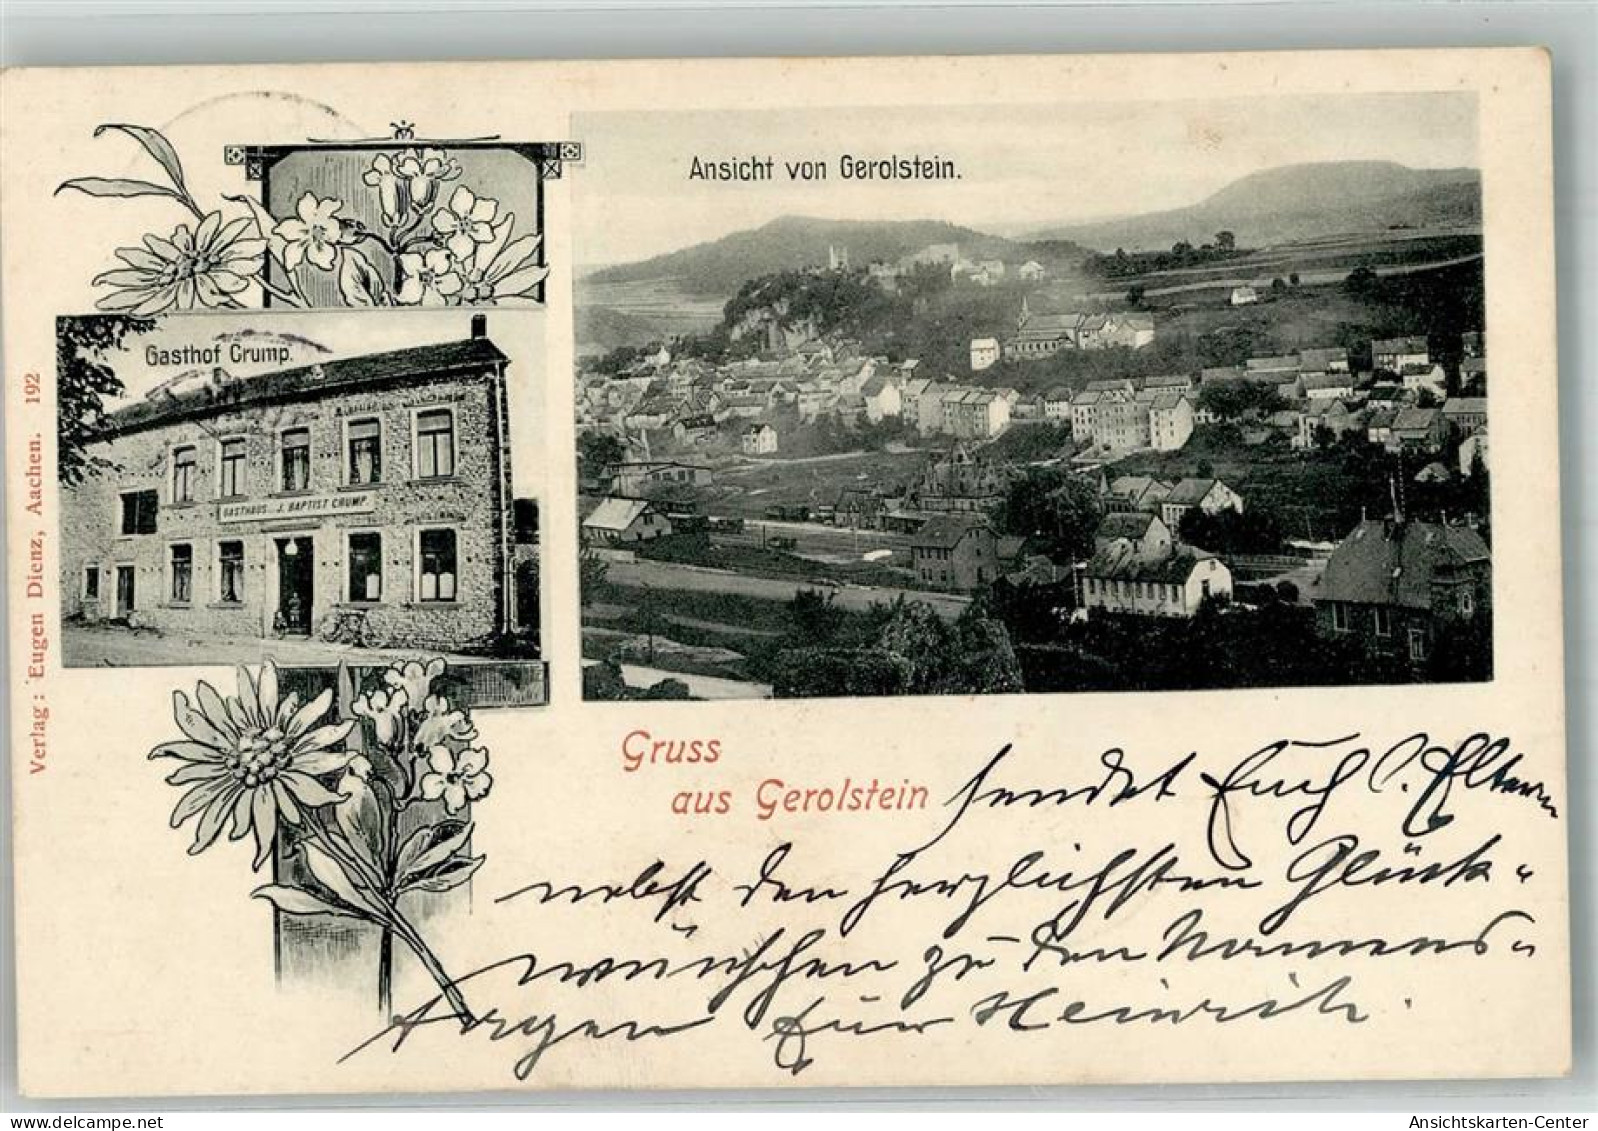 Ansicht von Gerolstein.
Gasthof Crump.
GASTHAUS J. BAPTIST CRUMP.
Verlag: Eugen Dienz, Aachen. 192
Gruss
aus Gerolstein
sendet Euch l. Eltern
nebst den herzlichsten Glück-
wünschen zu den Namens-
tagen Euer Heinrich.
Ansichtskarten-Center